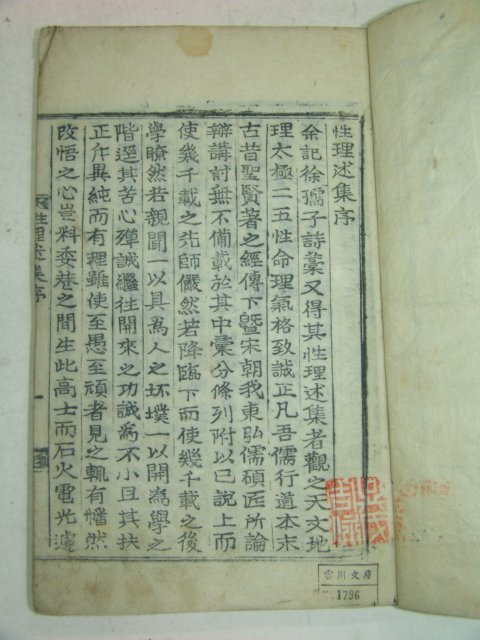 性理述集序
余記徐孺子詩藁又得其性理述集者觀之天文地
理太極二五性命理氣格致誠正凡吾儒行道本末
古昔聖賢著之經傳下曁宋朝我東弘儒碩匠所論
辨講討無不備載於其中彙分條列附以已說上而
使幾千載之先師儼然若降臨下而使幾千載之後
學瞭然若親聞一以具爲人之坏墣一以開爲學之
階逕其苦心殫誠繼往開來之功誠爲不小且其扶
正斥異純而有理雖使至愚至頑者見之輒有幡然
改悟之心豈料委巷之間生此高士而石火電光遽
性理述集序
一
雲川文庫
1736